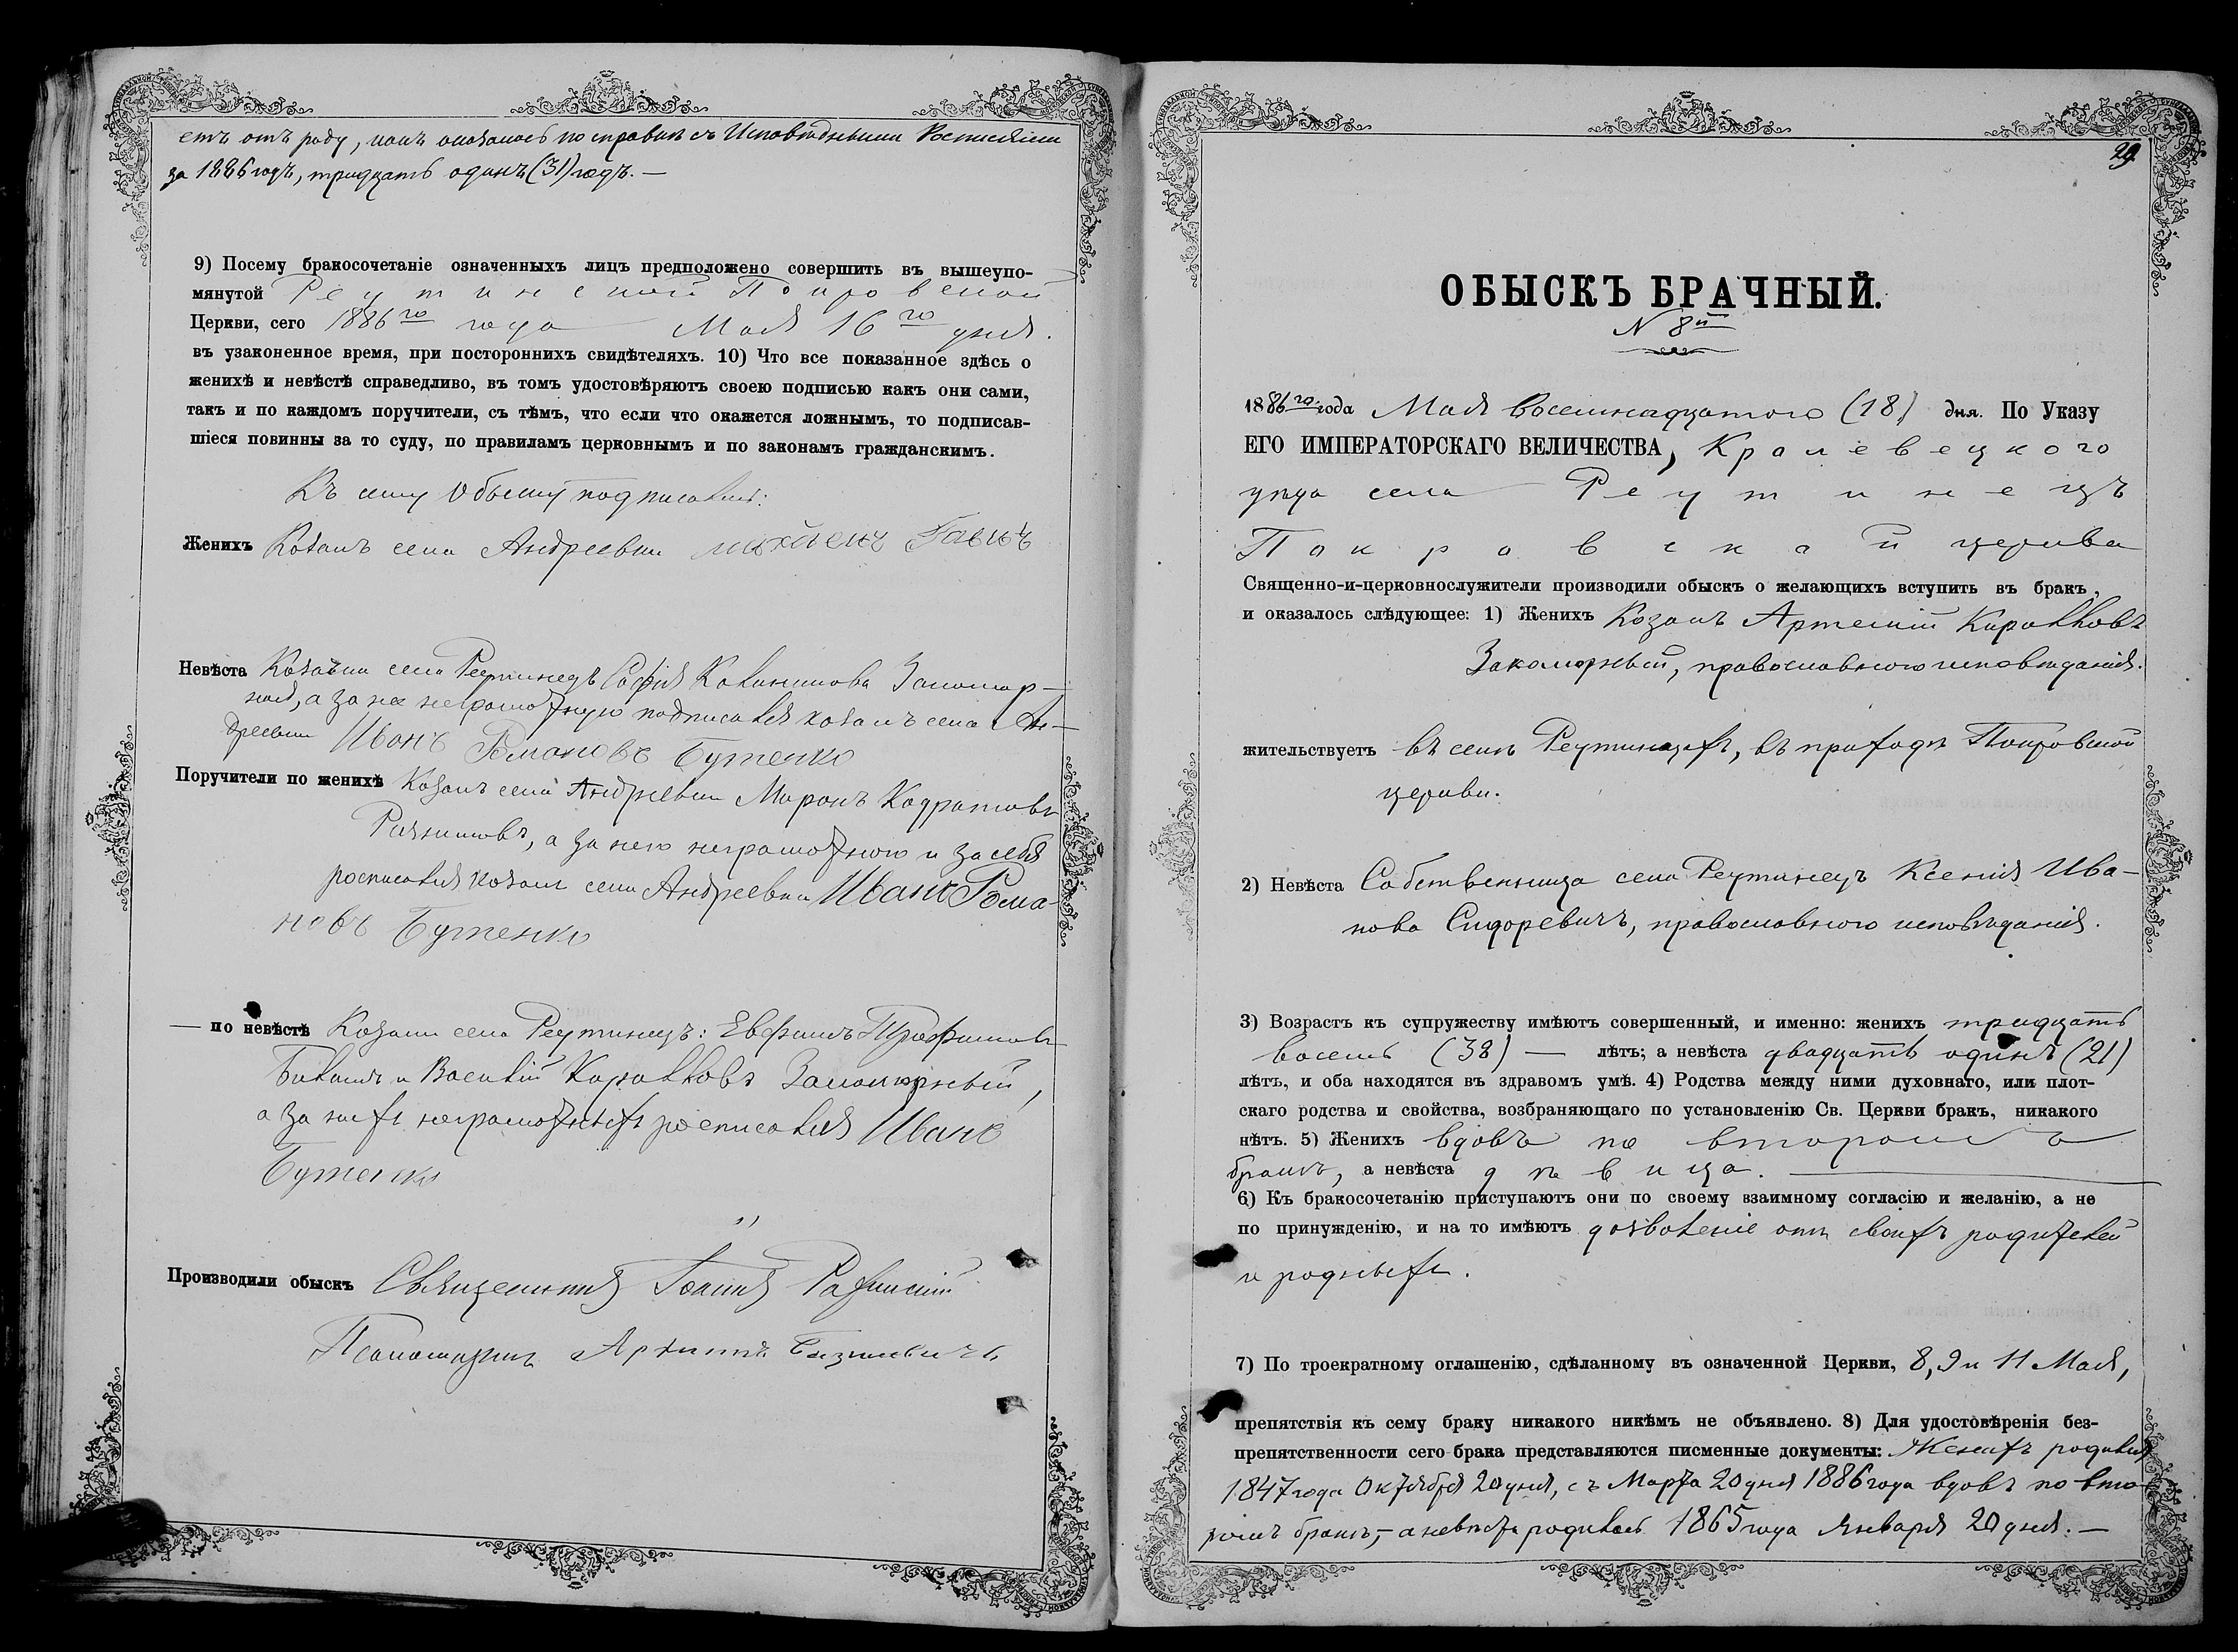 етъ отъ роду, какъ оказалось по справкѣ съ Исповѣдными Росписями
за 1886 годъ, тридцать одинъ (31) годъ. —
9) Посему бракосочетаніе означенныхъ лицъ предположено совершить въ вышеупо-
мянутой Реутинской Покровской
Церкви, сего 1886го года Мая 16го дня.
въ узаконенное время, при постороннихъ свидѣтеляхъ. 10) Что все показанное здѣсь о
женихѣ и невѣстѣ справедливо, въ томъ удостовѣряютъ своею подписью какъ они сами,
такъ и по каждомъ поручители, съ тѣмъ, что если что окажется ложнымъ, то подписав-
шіеся повинны за то суду, по правиламъ церковнымъ и по законамъ гражданскимъ.
Къ сему Обыску подписались:
Женихъ Козакъ села Андреевки
Невѣста Козачка села Реутинецъ Софія Калинникова Закомор-
ная, а за нее неграмотную подписался козакъ села Ан-
дреевки Иванъ Романовъ Бутенко
Поручители по женихѣ Козакъ села Андреевки Миронъ Кодратовъ
а за него неграмотного и за себя
росписался козакъ села Андреевки Иванъ Рома-
новъ Бутенко
— по невѣстѣ Козаки села Реутинецъ: Евфимъ Трофимовъ
и Василій Карповъ Закоморный,
а за нихъ неграмотныхъ росписался Иванъ
Бутенко
Производили обыскъ Священникъ Іоаннъ
Псаломщикъ
29
ОБЫСКЪ БРАЧНЫЙ.
N 8й
1886го года Мая восемнадцатого (18) дня. По Указу
ЕГО ИМПЕРАТОРСКАГО ВЕЛИЧЕСТВА, Кролевецкого
уѣзда села Реутинецъ
Покровской церкви
Священно-и-церковнослужители производили обыскъ о желающихъ вступить въ бракъ,
и оказалось слѣдующее: 1) Женихъ Козакъ Артемій Карповъ
Закоморный, православного исповѣданія.
жительствуетъ въ селѣ Реутинцахъ, въ приходѣ Покровской
церкви.
2) Невѣста Собственница села Реутинецъ Ксенія Ива-
нова Сидоревичъ, православного исповѣданія.
3) Возрастъ къ супружеству имѣютъ совершенный, и именно: женихъ тридцать
восемь (38) — лѣтъ; а невѣста двадцать одинъ (21)
лѣтъ, и оба находятся въ здравомъ умѣ. 4) Родства между ними духовнаго, или плот-
скаго родства и свойства, возбраняющаго по установленію Св. Церкви бракъ, никакого
нѣтъ. 5) Женихъ вдовъ по второмъ
бракѣ, а невѣста дѣвица.
6) Къ бракосочетанію приступаютъ они по своему взаимному согласію и желанію, а не
по принужденію, и на то имѣютъ дозволеніе отъ своихъ родителей
и родныхъ.
7) По троекратному оглашенію, сдѣланному въ означенной Церкви, 8, 9 и 11 Мая,
препятствія къ сему браку никакого никѣмъ не объявлено. 8) Для удостовѣренія без-
препятственности сего брака представляются писменные документы: Женихъ родился
1847 года Октября 20 дня, съ Марта 20 дня 1886 года вдовъ по вто-
ромъ бракѣ, — а невѣста родилась 1865 года Января 20 дня. —